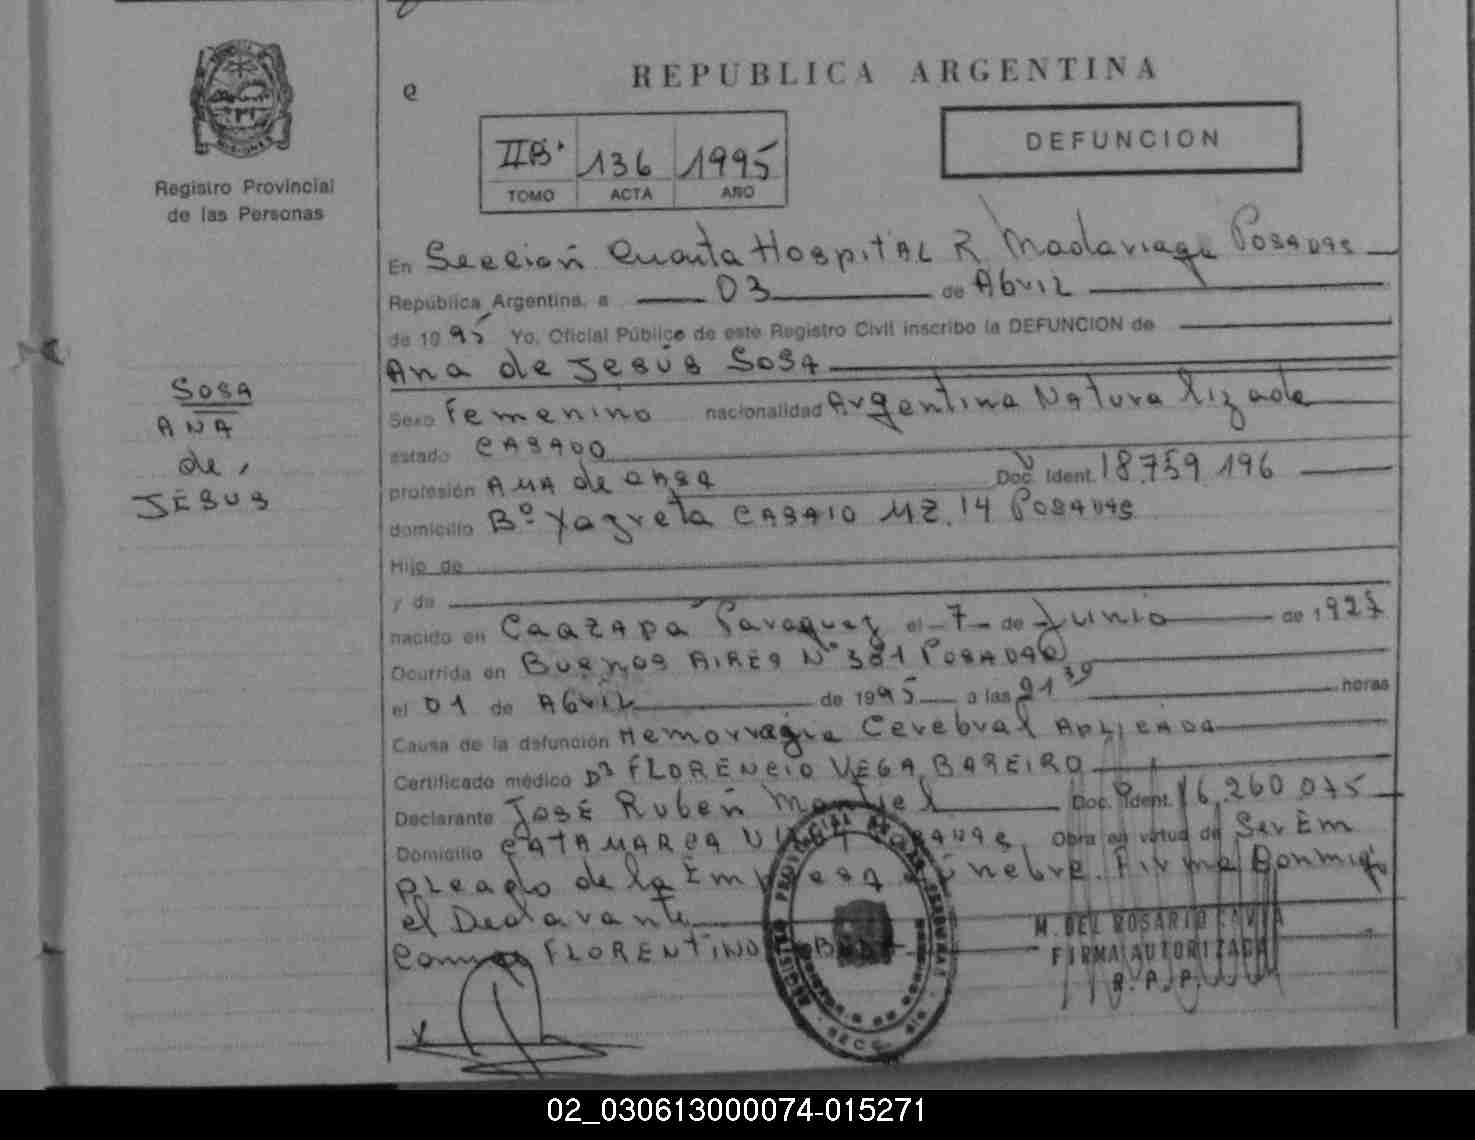 REPUBLICA ARGENTINA
DEFUNCION
IIB 136 1995
TOMO ACTA AÑO
Registro Provincial
de las Personas
SOSA
ANA
de
JESUS
En Sección Cuarta Hospital R Madariaga Posadas
República Argentina, a 03 de Abril
de 1995 Yo, Oficial Público de este Registro Civil inscribo la DEFUNCION de
Ana de Jesús Sosa
Sexo Femenino nacionalidad Argentina Naturalizada
estado CASADO
profesión AMA de casa Doc. Ident. 18.759.196
domicilio Bº Yasyreta CASA 10 MZ. 14 Posadas
Hijo de
y de
nacido en Caazapá Paraguay el 7 de Junio de 1927
Ocurrida en Buenos Aires Nº 381 Posadas
el 01 de Abril de 1995 a las 21 30 horas
Causa de la defunción Hemorragia Cerebral
Certificado médico Dr FLORENCIO VEGA BAREIRO
Declarante José Rubén Montiel Doc. Ident. 16.260.075
Domicilio CATAMARCA Obra en virtud de Ser Em
pleado de la Empresa Fúnebre. Firma Conmigo
el Declarante
FLORENTINO
M. DEL ROSARIO
FIRMA AUTORIZADA
R. P. P.
REGISTRO PROVINCIAL DE LAS PERSONAS
02_030613000074-015271